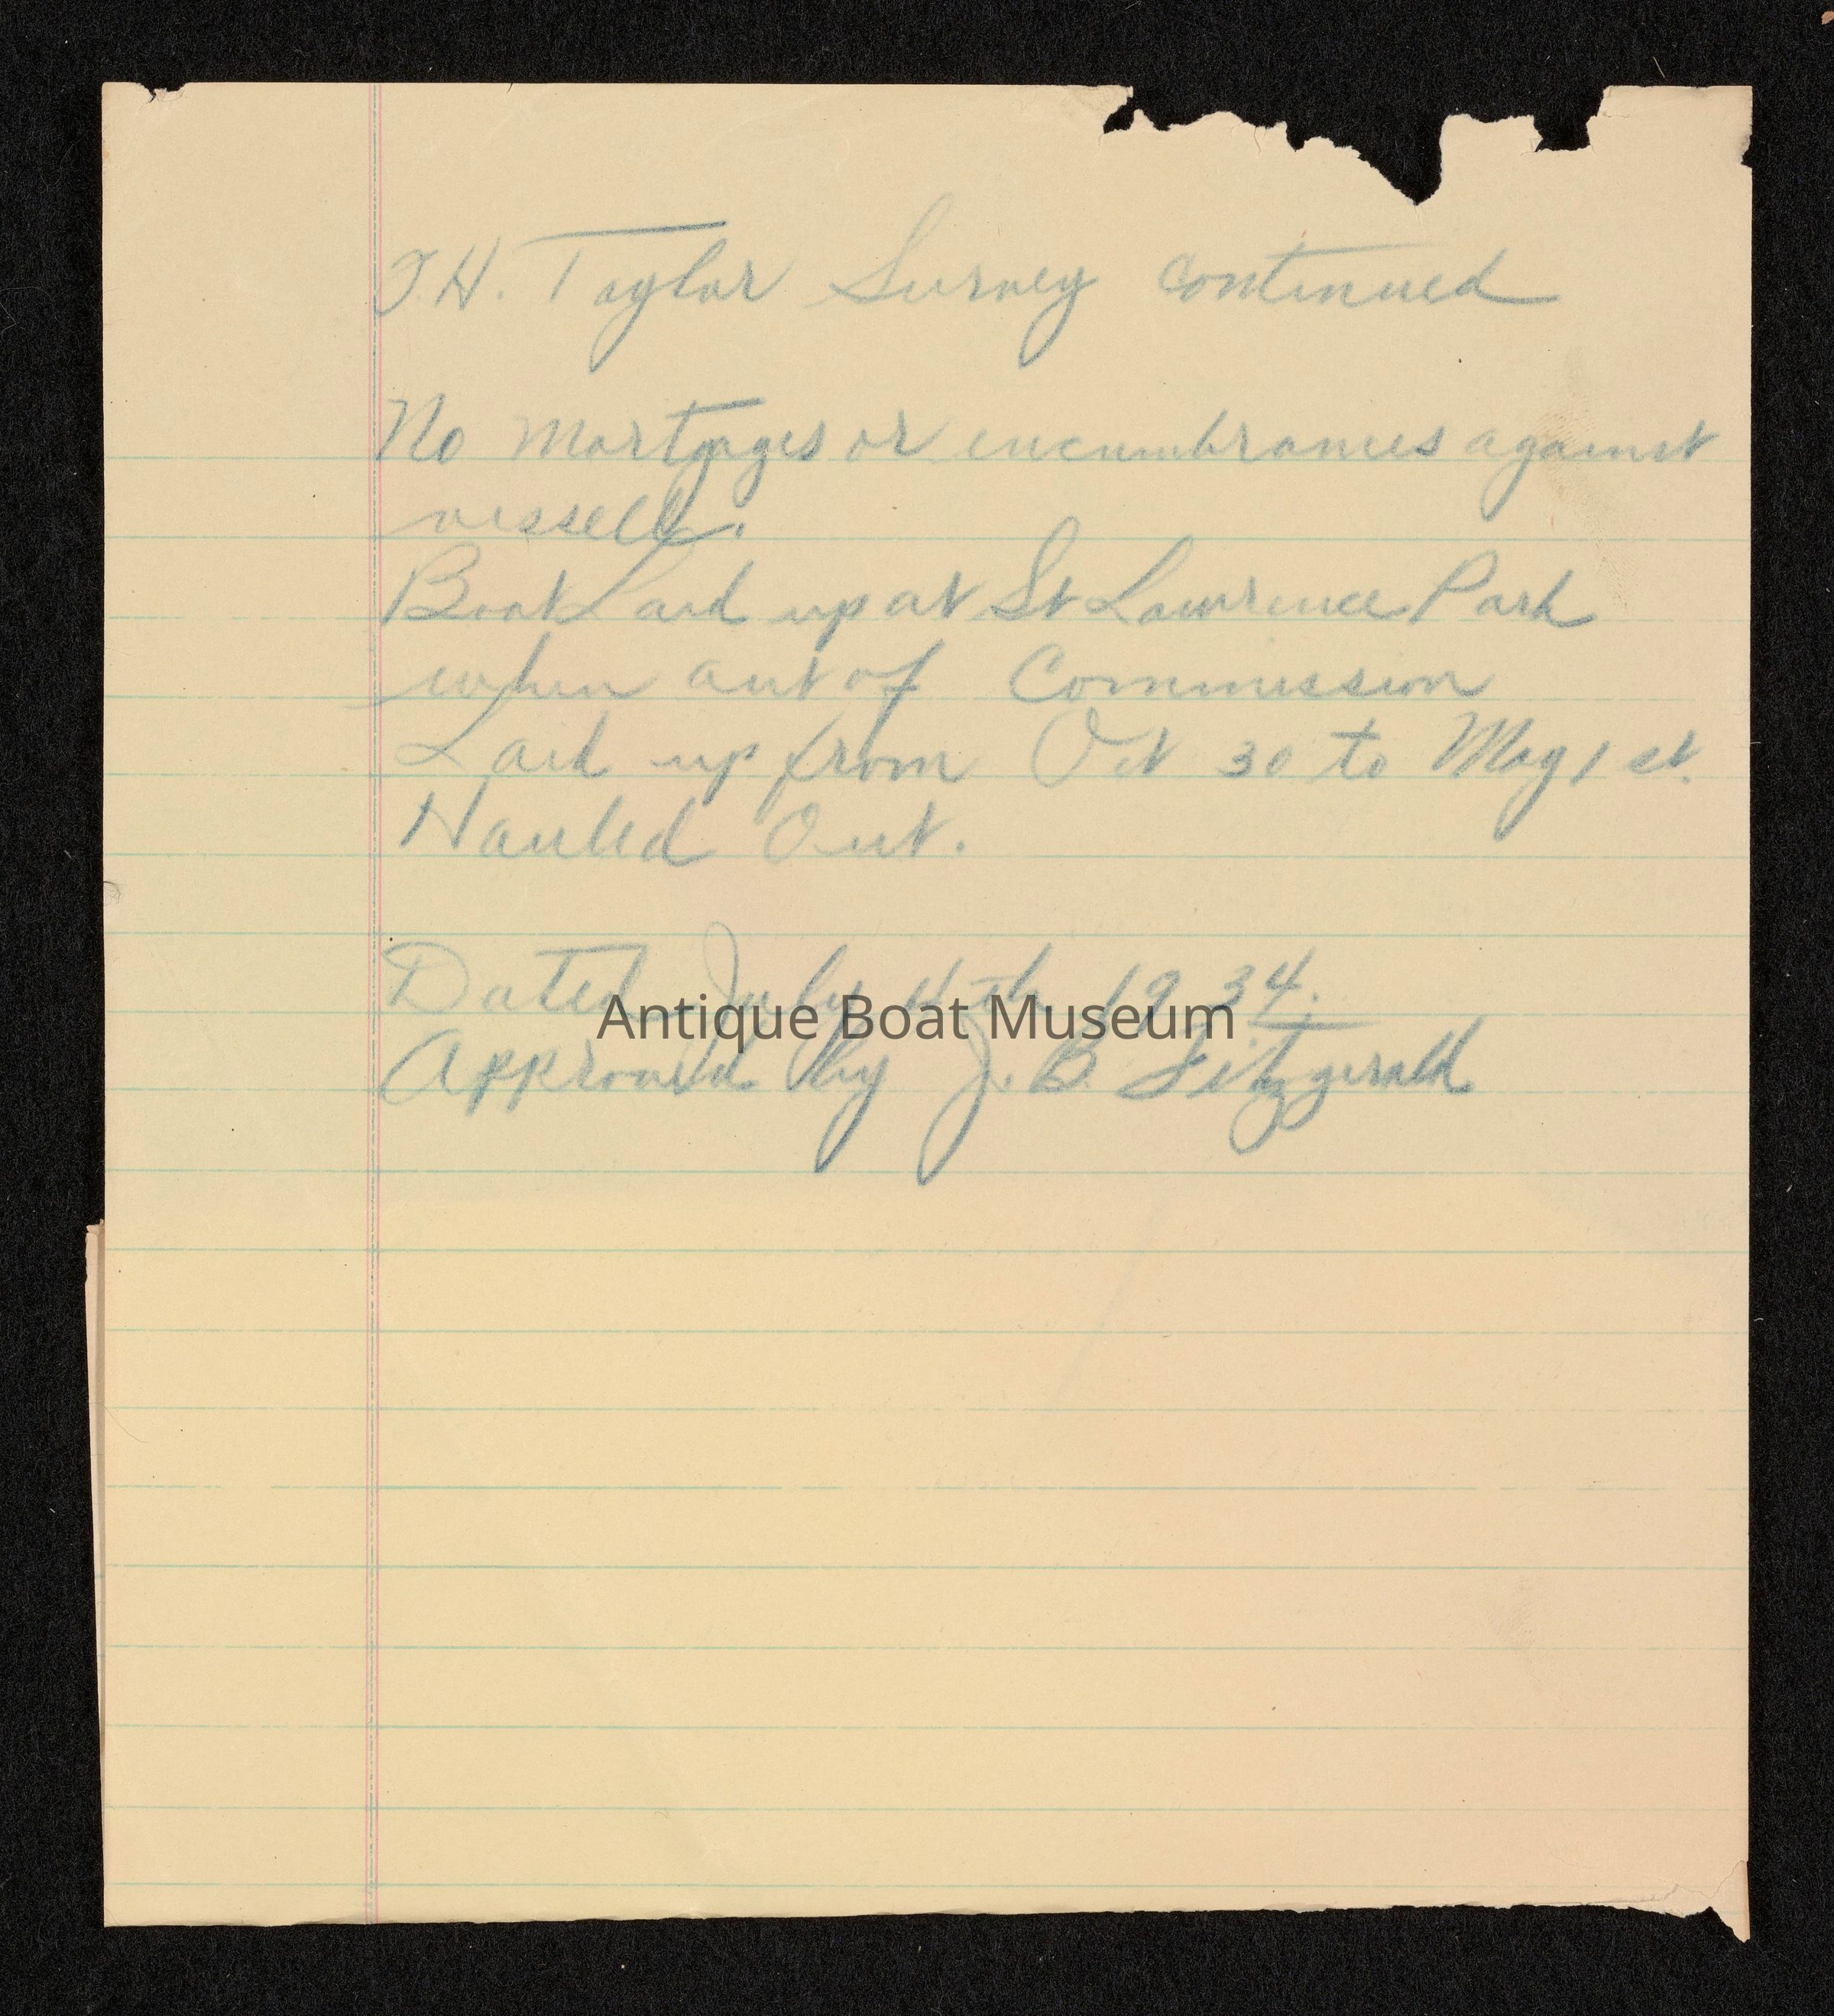 T.H. Taylor Survey continued
No mortgages or encumbrances against
vessell.
Boat Laid up at St Lawrence Park
when out of Commission
Laid up from Oct 30 to May 1 st.
Hauled Out.
Dated July 4th 1934.
Antique Boat Museum
Approved by J. B. Fitzgerald